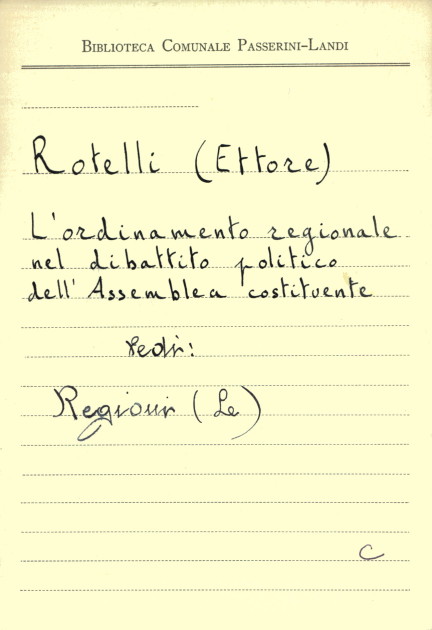 BIBLIOTECA COMUNALE PASSERINI-LANDI
Rotelli (Ettore)
L'ordinamento regionale
nel dibattito politico
dell'Assemblea costituente
vedi:
Regioni (Le)
C